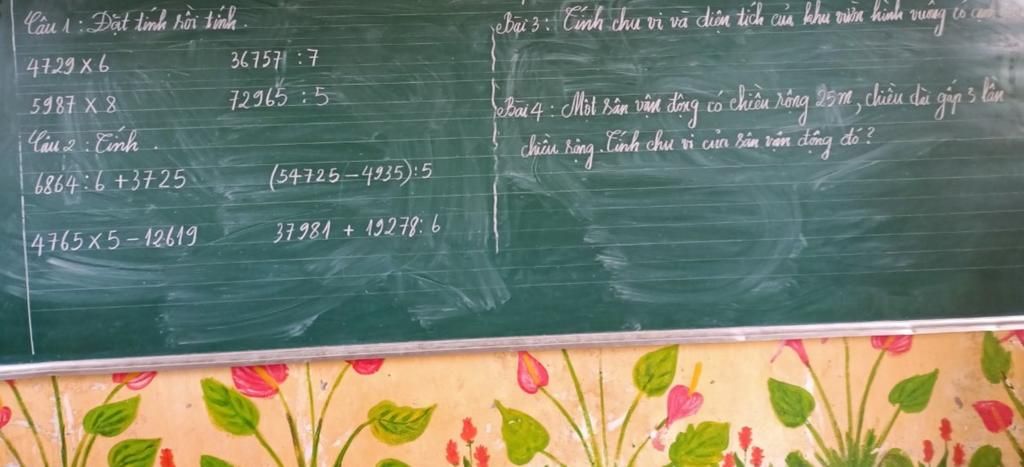 Câu 1 : Đặt tính rồi tính.
4729 x 6 36757 : 7
5987 x 8 72965 : 5
Câu 2 : Tính.
6864 : 6 + 3725 (54725 - 4935) : 5
4765 x 5 - 12619 37981 + 19278 : 6
Bài 3 : Tính chu vi và diện tích của khu vườn hình vuông có cạnh
Bài 4 : Một sân vận động có chiều rộng 25m, chiều dài gấp 3 lần
chiều rộng. Tính chu vi của sân vận động đó ?